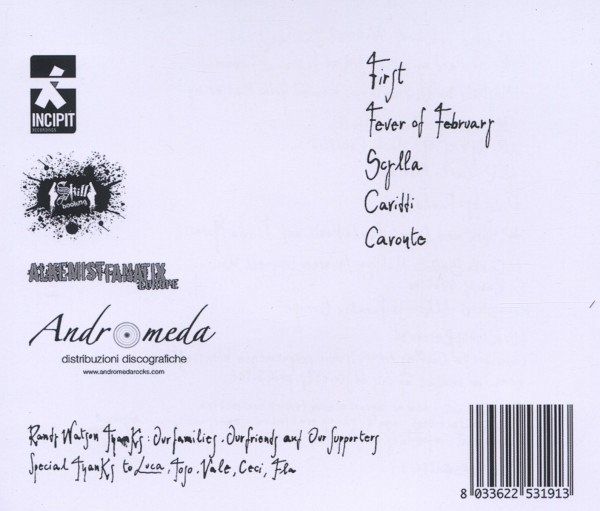 INCIPIT
RECORDINGS
Skill
booking
ALKEMIST FANATIX
EUROPE
Andromeda
distribuzioni discografiche
www.andromedarocks.com
First
Fever of February
Scylla
Cariddi
Caronte
Randy Watson Thanks: Our families, Our friends and Our Supporters
Special Thanks to Luca, Jojo, Vale, Ceci, Fla
8 033622 531913